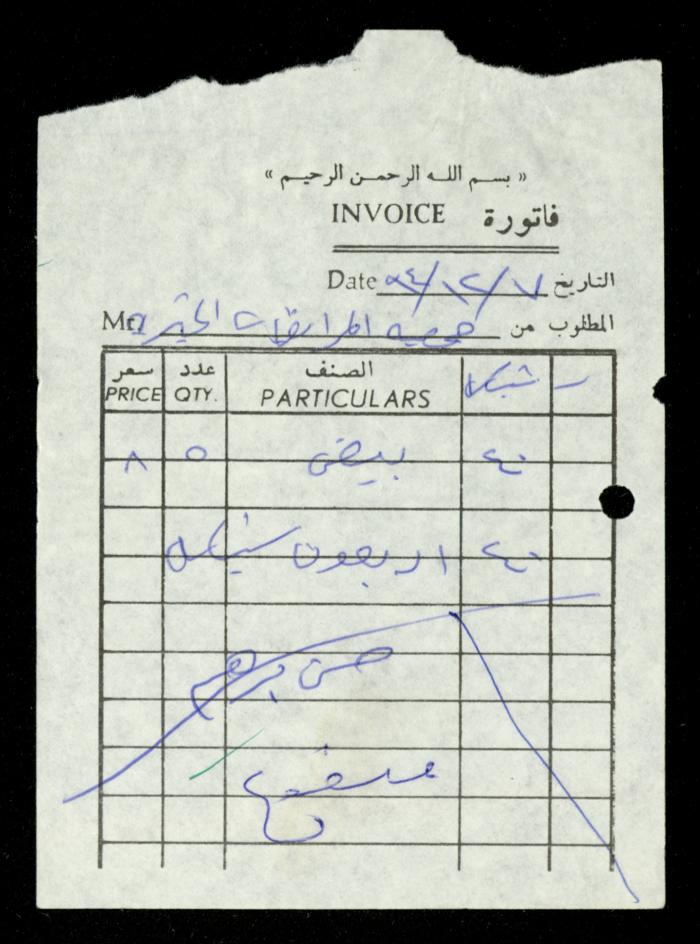 « بسم الله الرحمن الرحيم »
INVOICE فاتورة
Date ٩٤/١٢/٧ التاريخ
المطلوب من جمعية Mr.
سعر عدد الصنف شيكل
PRICE QTY. PARTICULARS
٨ ٥ بيض ٤٠
اربعون شيكل ٤٠
حسن ابراهيم